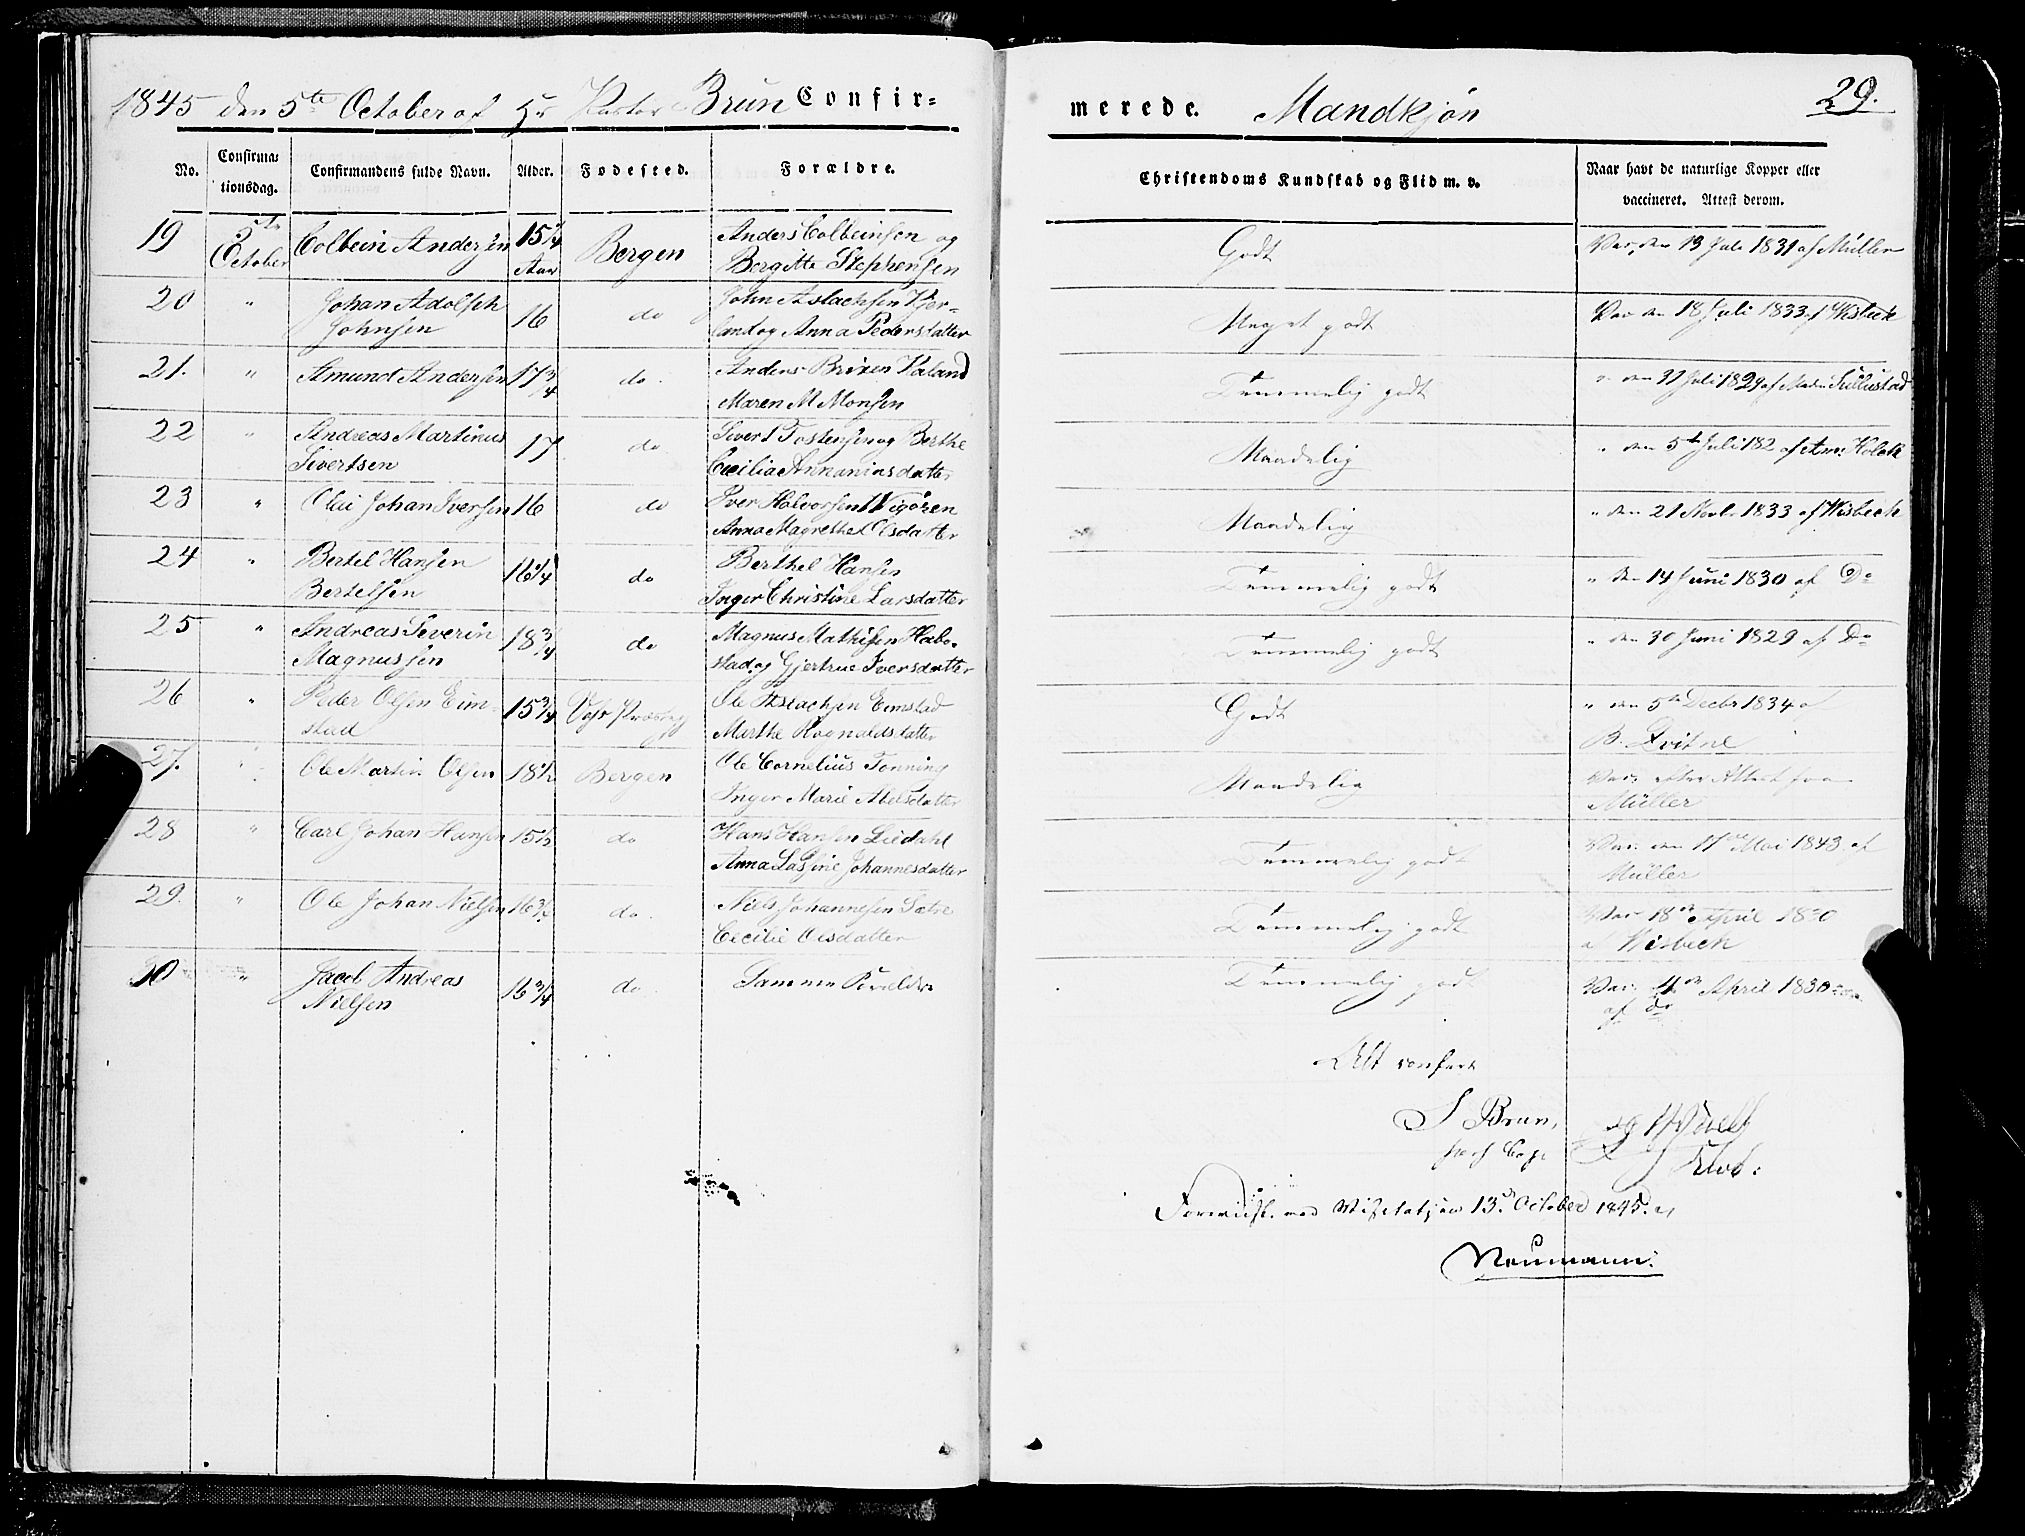 1845 den 5te October af Hr Pastor Brun Confir=
merede. Mandkjøn 29.
No. Confirma=tionsdag. Confirmandens fulde Navn. Alder. Fødested. Forældre.
Christendoms Kundskab og Flid m. v. Naar havt de naturlige Kopper eller vaccineret. Attest derom.
19 5te October Colbein Andersen 15 1/4 Aar Bergen Anders Colbeinsen og
Bergitte Stephensen
Godt Vac. den 13 Juli 1831 af Müller
20 " Johan Adolph Johnsen 16 do John Aslachsen Kjer=
land og Anna Pedersdatter
Meget godt Vac den 18 Juli 1833 af Wisbech
21. " Amund Andersen 17 3/4 do. Anders Brixen Kaland
Maren M Monsen
Temmelig godt " den 31 Juli 1829 af
22 " Andreas Martinus Sivertsen 17 do Sivert Tostensen og Berthe
Cecilia Annaniasdatter
Maadelig " den 5te Juli 182 af
23 " Olai Johan Iversen 16 do Iver Halvorsen Vigøren
Anna Magrethe Olsdatter
Maadelig " den 21 1833 af Wisbech
24 " Bertel Hansen Bertelsen 16 1/4 do Berthel Hansen
Inger Christine Larsdatter
Temmelig godt " den 14 Juni 1830 af Do
25 " Andreas Severin Magnussen 18 3/4 do Magnus Mathisen Habo=
stad og Gjertrue Iversdatter
Temmelig godt " den 30 Juni 1829 af Do
26 " Peder Olsen Eim=
stad 15 3/4 Præstegj Ole Aslachsen Eimstad
Marthe Rognaldsdatter
Godt " den 5te Decbr 1834 af
B.
27. " Ole Martin Olsen 18 1/2 Bergen Ole Cornelius Tonning
Inger Marie Abelsdatter
Maadelig Vac. efter Attest fra
Müller
28 " Carl Johan Hansen 15 1/2 do Hans Hansen Liedahl
Anna Lassine Johannesdatter
Temmelig godt Vac. den 17 Mai 1843 af
Müller
29. " Ole Johan Nielsen 16 3/4 do. Niels Johannesen Sætre
Cecilie Olsdatter
Temmelig godt Vac 18de April 1830
af Wisbech
30 " Jacob Andreas
Nielsen 16 3/4 do. Samme Forældre
Temmelig godt Vac. April 1830
af do
J Brun,
pers. Cap.
Foreviist ved Visitatsen 13de October 1845.
Neumann.